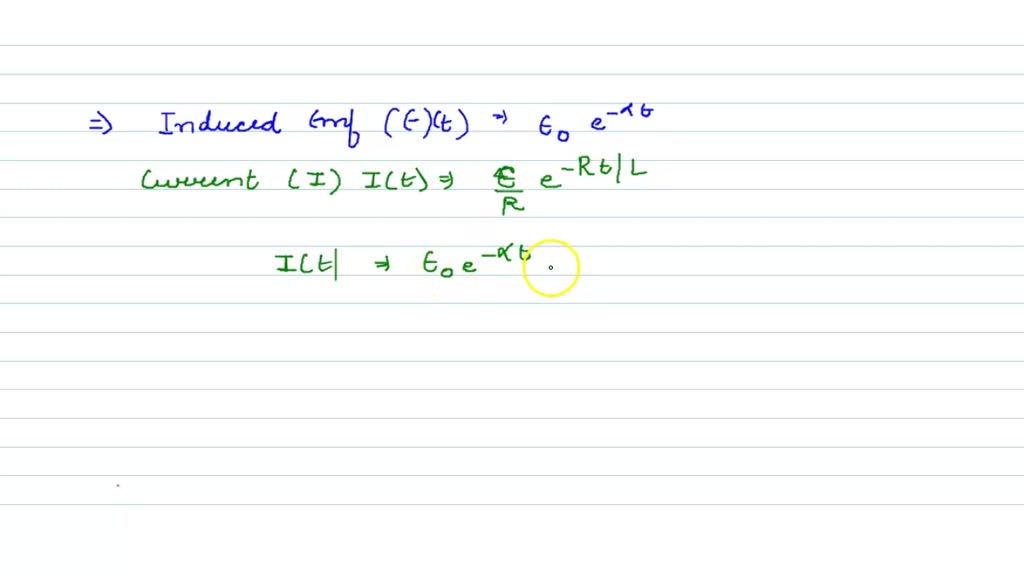 ⇒ Induced Emf (E)(t) ⇒ ε₀ e^{-αt}
Current (I) I(t) ⇒ ε/R e^{-Rt/L}
I(t) ⇒ ε₀ e^{-αt}